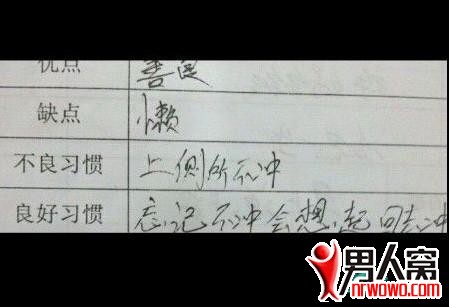 优点 善良
缺点 懒
不良习惯 上侧所不冲
良好习惯 忘记不冲会想起回去冲
男人窝
nrwowo.com